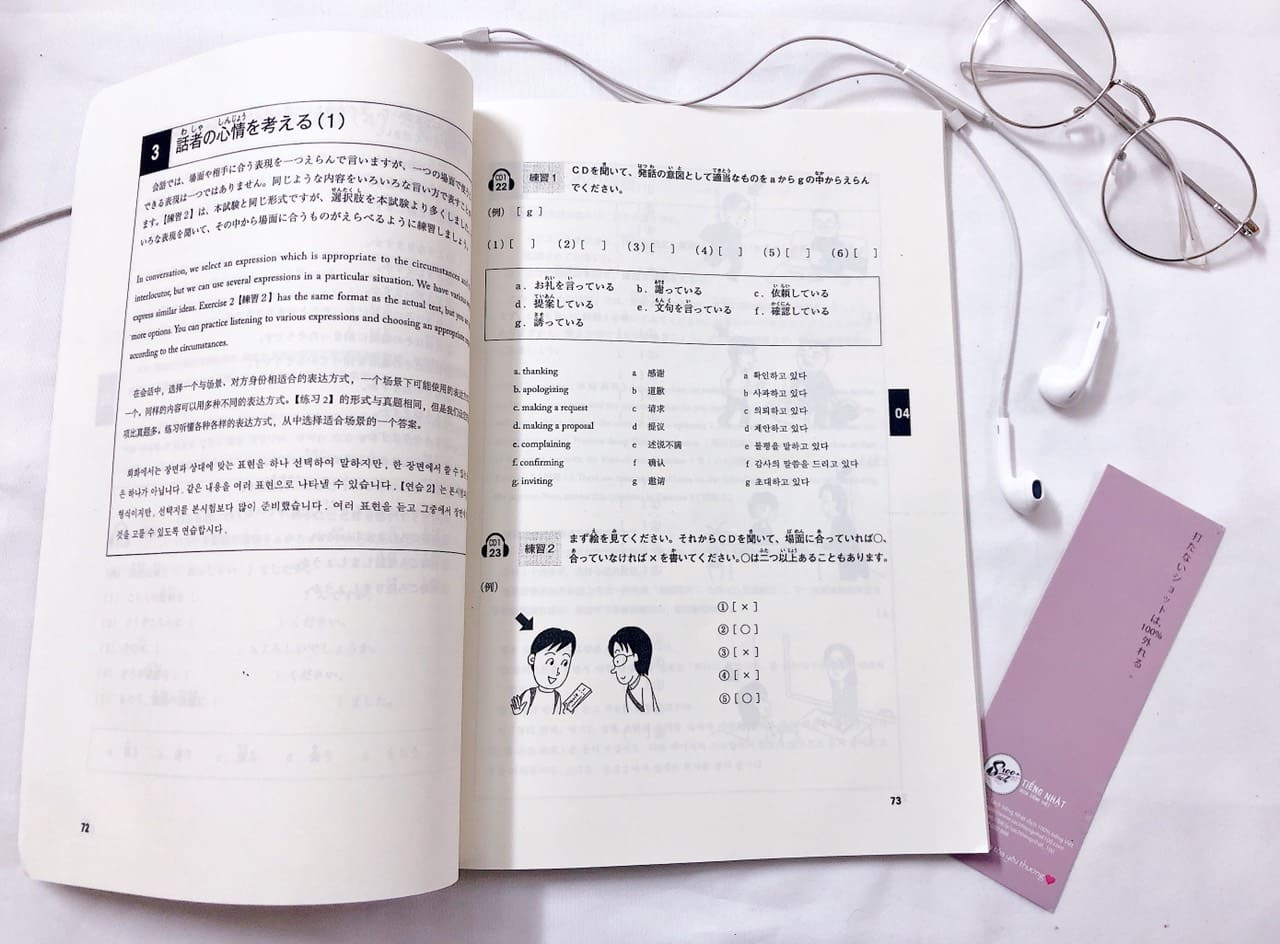 3 話者の心情を考える(1)
会話では、場面や相手に合う表現を一つえらんで言いますが、一つの場面で使
できる表現は一つではありません。同じような内容をいろいろな言い方で表すこ
ます。【練習2】は、本試験と同じ形式ですが、選択肢を本試験より多くしました。
いろな表現を聞いて、その中から場面に合うものがえらべるように練習しましょう。
In conversation, we select an expression which is appropriate to the circumstances
interlocutor, but we can use several expressions in a particular situation. We have
express similar ideas. Exercise 2【練習2】has the same format as the actual test, but
more options. You can practice listening to various expressions and choosing an appropriate
according to the circumstances.
在会话中，选择一个与场景、对方身份相适合的表达方式，一个场景下可能使用的表达
一个。同样的内容可以用多种不同的表达方式。【练习2】的形式与真题相同，但是我们
项比真题多。练习听懂各种各样的表达方式，从中选择适合场景的一个答案。
회화에서는 장면과 상대에 맞는 표현을 하나 선택하여 말하지만, 한 장면에서 쓸 수
은 하나가 아닙니다. 같은 내용을 여러 표현으로 나타낼 수 있습니다. 【연습2】는 본시험과
형식이지만, 선택지를 본시험보다 많이 준비했습니다. 여러 표현을 듣고 그중에서 장면에
것을 고를 수 있도록 연습합시다.
72
CD1
22
練習1 CDを聞いて、発話の意図として適当なものをaからgの中からえらん
でください。
(例) [ g ]
(1)[ ] (2)[ ] (3)[ ] (4)[ ] (5)[ ] (6)[ ]
a. お礼を言っている b. 謝っている c. 依頼している
d. 提案している e. 文句を言っている f. 確認している
g. 誘っている
a. thanking a 感谢 a 확인하고 있다
b. apologizing b 道歉 b 사과하고 있다
c. making a request c 请求 c 의뢰하고 있다
d. making a proposal d 提议 d 제안하고 있다
e. complaining e 述说不满 e 불평을 말하고 있다
f. confirming f 确认 f 감사의 말씀을 드리고 있다
g. inviting g 邀请 g 초대하고 있다
04
CD1
23
練習2 まず絵を見てください。それからCDを聞いて、場面に合っていれば○、
合っていなければ×を書いてください。○は二つ以上あることもあります。
(例)
①[ × ]
②[ ○ ]
③[ × ]
④[ × ]
⑤[ ○ ]
73
打たないショットは、
100%外れる。
TIẾNG NHẬT
yêu thương